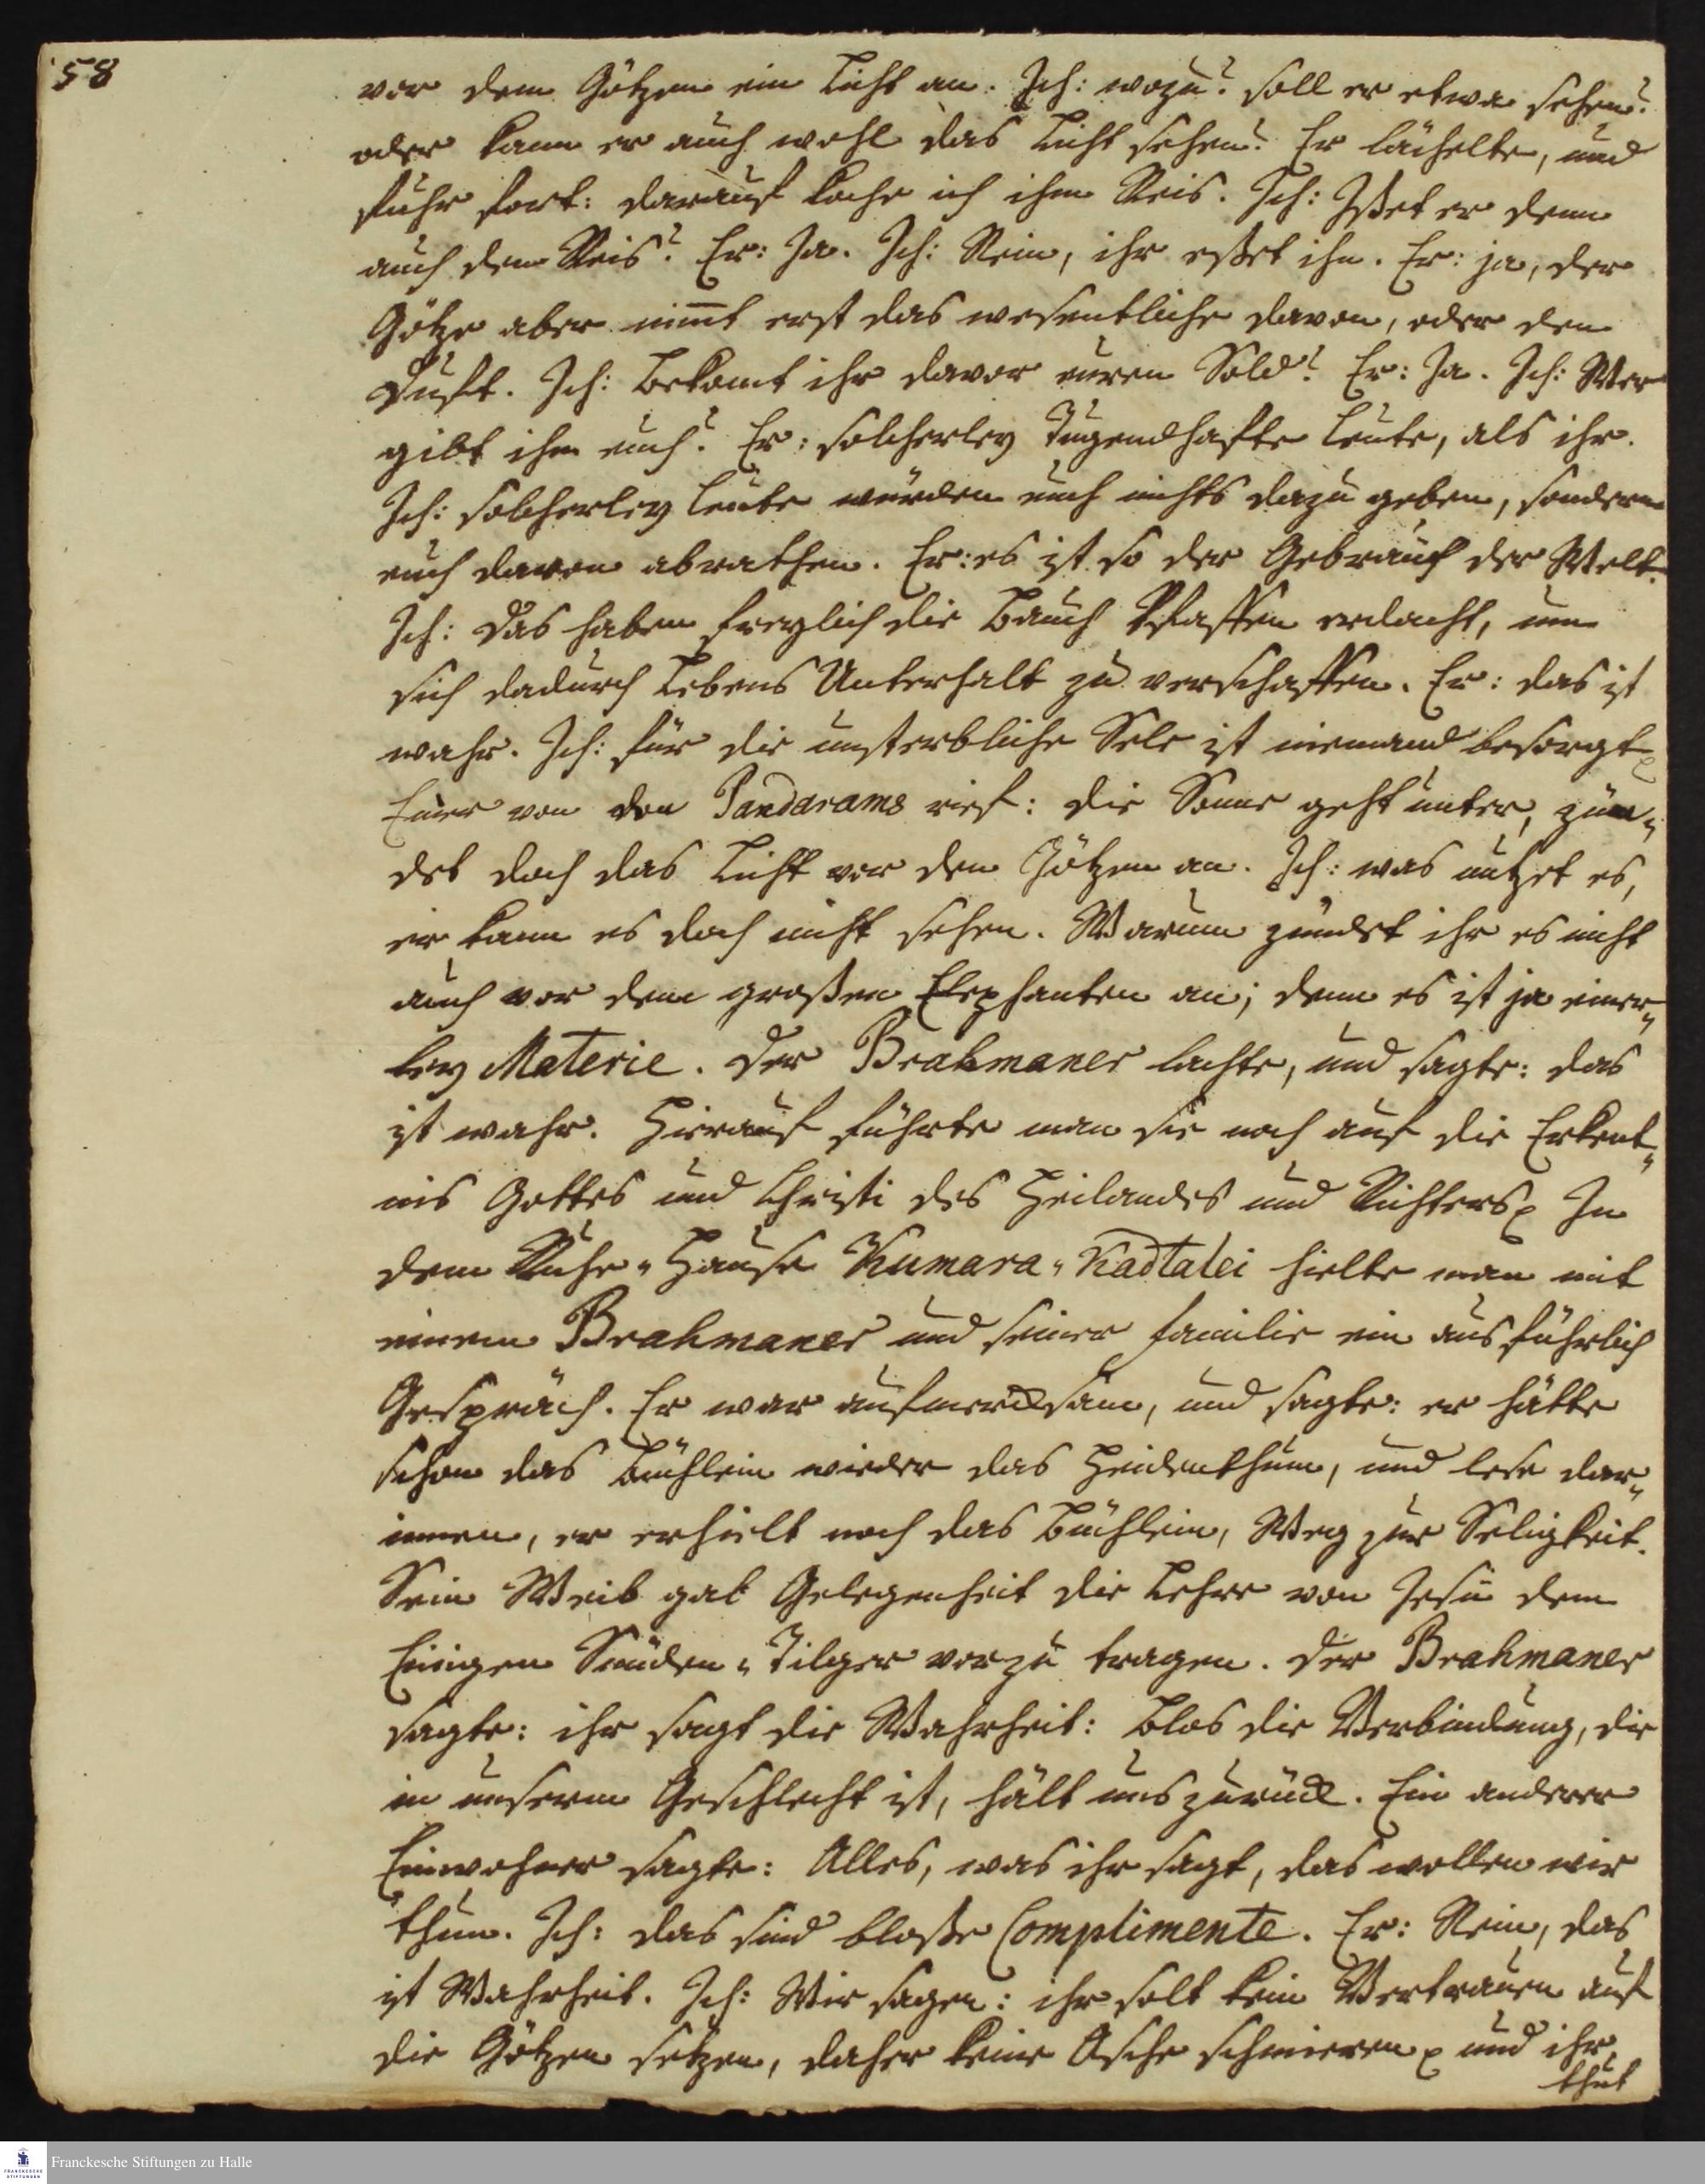 58
vor dem Götzen ein Licht an. Ich: wozu? soll er etwa sehen?
oder kann er auch wohl das Licht sehen? Er lächelte, und
fuhr fort: darauf koche ich ihm Reis. Ich: Ißet er denn
auch den Reis? Er: Ja. Ich: Nein, ihr eßet ihn. Er: ja, der
Götze aber nim̅t erst das wesentliche davon, oder den
Duft. Ich: Bekomt ihr davor euren Sold? Er: Ja. Ich: Wer
gibt ihn euch? Er: solcherley Tugendhafte Leute, als ihr.
Ich: solcherley Leute würden euch nichts dazu geben, sondern
euch davon abrathen. Er: es ist so der Gebrauch der Welt.
Ich: Das haben freylich die Bauch Pfaffen erdacht, um
sich dadurch Lebens Unterhalt zu verschaffen. Er: das ist
wahr. Ich: für die unsterbliche Sele ist niemand besorgt
Einer von den Pandarams rief: die Sonne geht unter, zün„
det doch das Licht vor den Götzen an. Ich: was nützet es,
er kann es doch nicht sehen. Warum zündet ihr es nicht
auch vor dem großen Elephanten an; denn es ist ja einer„
ley Materie. Der Brahmaner lachte, und sagte: das
ist wahr. Hierauf führte man sie noch auf die Erkent„
nis Gottes und Christi des Heilandes und Richters In
dem Ruhe„Hause Kumara„Kadtalei hielte man mit
einem Brahmaner und seiner Familie ein ausführlich
Gespräch. Er war aufmercksam, und sagte: er hätte
schon das Büchlein wieder das Heidenthum, und lese dar„
innen, er erhielt noch das Büchlein, Weg zur Seligkeit.
Sein Weib gab Gelegenheit die Lehre von Jesu dem
Einigen Sünden„Tilger vorzu tragen. Der Brahmaner
sagte: ihr sagt die Wahrheit: blos die Verbindung, die
in unserm Geschlecht ist, hält uns zurück. Ein anderer
Einwohner sagte: Alles, was ihr sagt, das wollen wir
thun. Ich: das sind bloße Complimente. Er: Nein, das
ist Wahrheit. Ich: Wir sagen: ihr solt kein Vertrauen auf
die Götzen setzen, daher keine Asche schmieren und ihr
thut
FRANCKESCHE STIFTUNGEN
Franckesche Stiftungen zu Halle